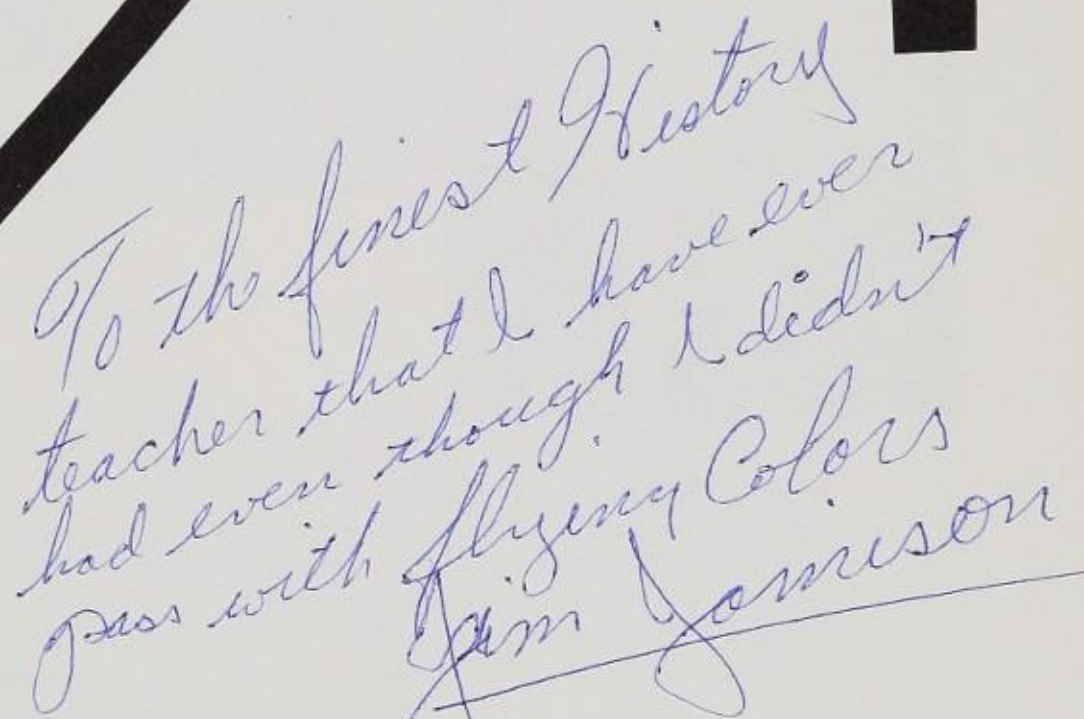 To the finest History
teacher that I have ever
had even though I didn't
pass with flying Colors
Jim Jamison